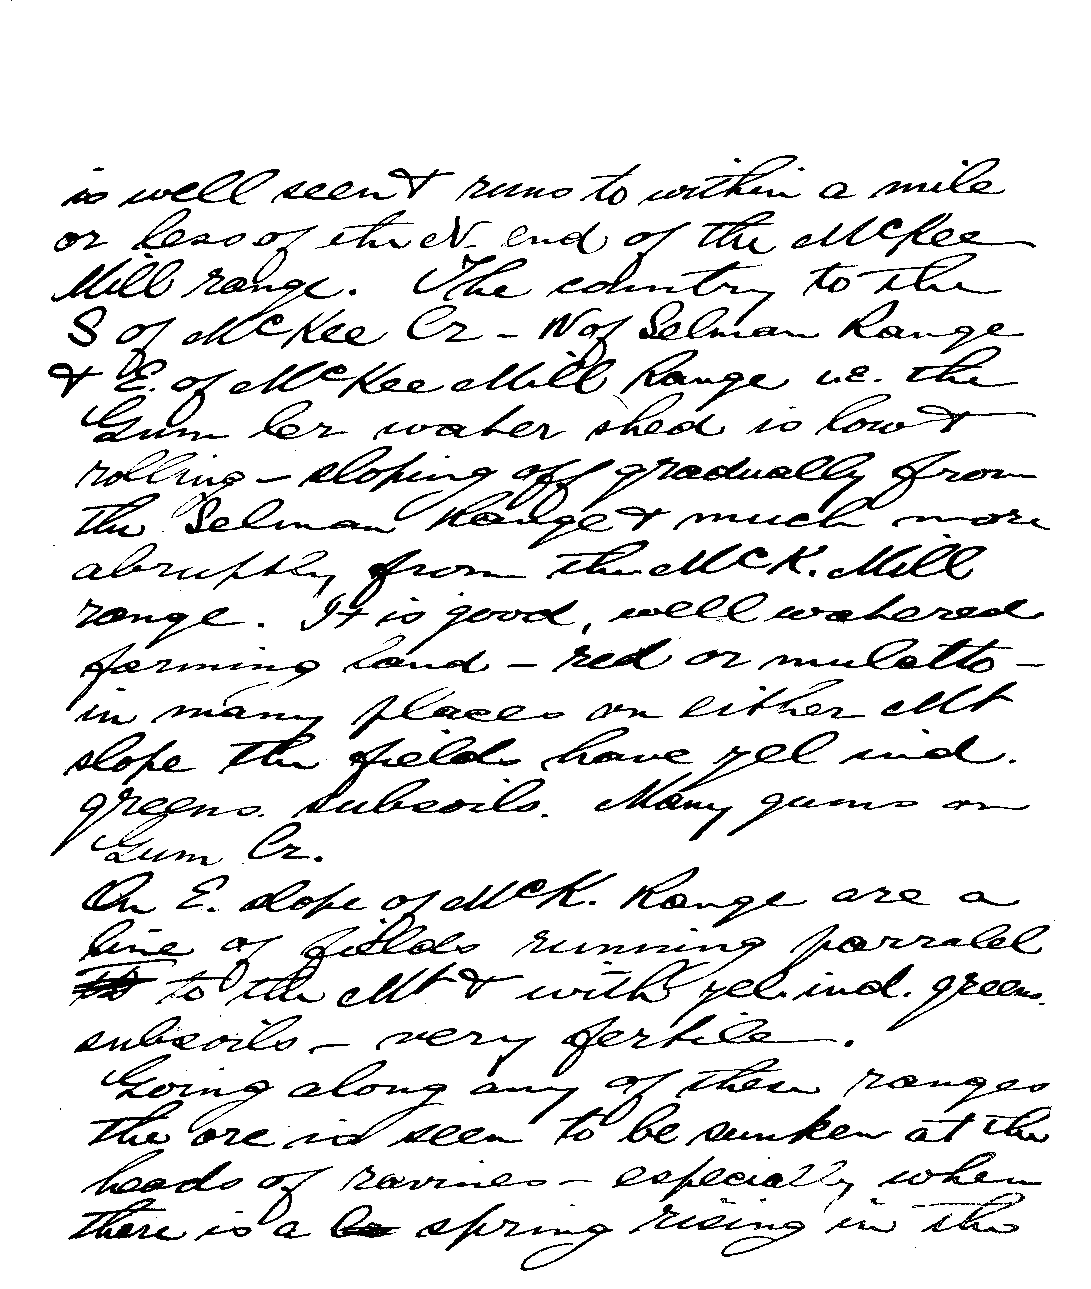 is well seen & runs to within a mile
or less of the N. end of the McKee
Mill range. The country to the
S of McKee Cr - N of Selman Range
& E. of McKee Mill Range i.e. the
Gum Cr water shed is low &
rolling - sloping off gradually from
the Selman Range & much more
abruptly from the McK. Mill
range. It is good, well watered
farming land - red or mulatto -
in many places on either Mt
slope the fields have yel ind.
greens. subsoils. Many gums on
Gum Cr.
On E. slope of McK. Range are a
line of fields running parralel
to the Mt & with yel. ind. greens.
subsoils - very fertile.
Going along any of these ranges
the ore is seen to be sunken at the
heads of ravines - especially when
there is a spring rising in the